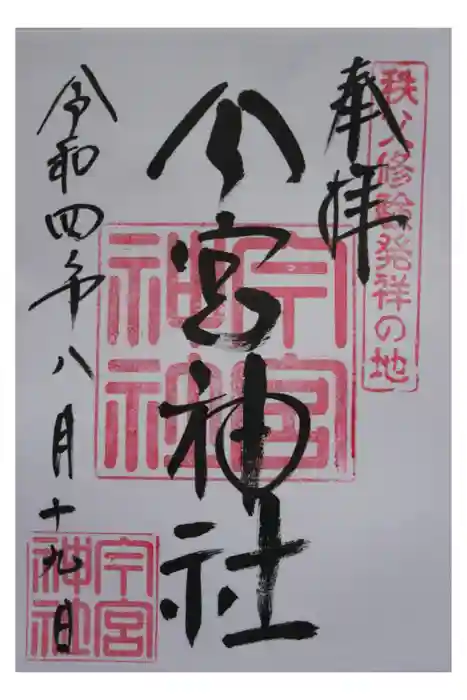 秩父修験発祥の地
奉拝
今宮神社
今宮
神社
令和四年八月十九日
今宮
神社